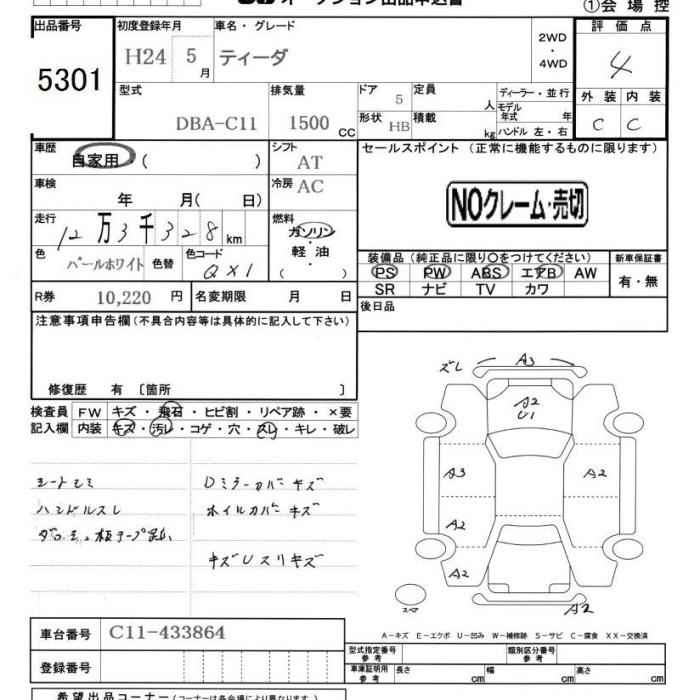 オークション出品申込書
①会場控
出品番号 初度登録年月 車名・グレード 2WD・4WD 評価点
5301 H24 5月 ティーダ 4
型式 排気量 ドア 5 定員 人 ディーラー・並行 外装 内装
DBA-C11 1500 CC 形状 HB 積載 kg モデル年式 年 C C
ハンドル 左・右
車歴 自家用・( ) シフト AT セールスポイント (正常に機能するものに限ります)
車検 年 月( 日) 冷房 AC
NOクレーム・売切
走行 12万3千328km 燃料 ガソリン・軽油・( )
色 パールホワイト 色替 色コード QX1
装備品 (純正品に限り〇をつけてください) 新車保証書
PS PW ABS エアB AW 有・無
SR ナビ TV カワ
R券 10,220円 名変期限 月 日 後日品
注意事項申告欄 (不具合内容等は具体的に記入して下さい)
修復歴 有 [箇所 ]
検査員 FW キズ・飛石・ヒビ割・リペア跡・×要
記入欄 内装 キズ・汚レ・コゲ・穴・スレ・キレ・破レ
ズレ A3
A2
U1
A3 A2
A2
A2
A2
スペア
シートシミ Dミラーカバーキズ
ハンドルスレ ホイルカバーキズ
キズUスリキズ
A-キズ E-エクボ U-凹み W-補修跡 S-サビ C-腐食 XX-交換済
車台番号 C11-433864
登録番号
型式指定番号 参考 類別区分番号 参考
車庫証明用 参考 長さ cm 幅 cm 高さ cm
希望出品コーナー (コーナーは各会場により異なります)